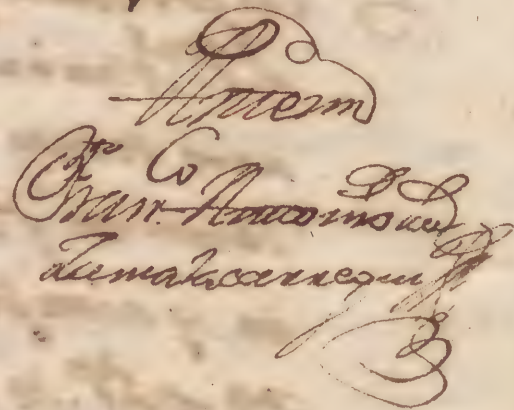 Antem
Fran.co Antonio de
Zumalacarregui